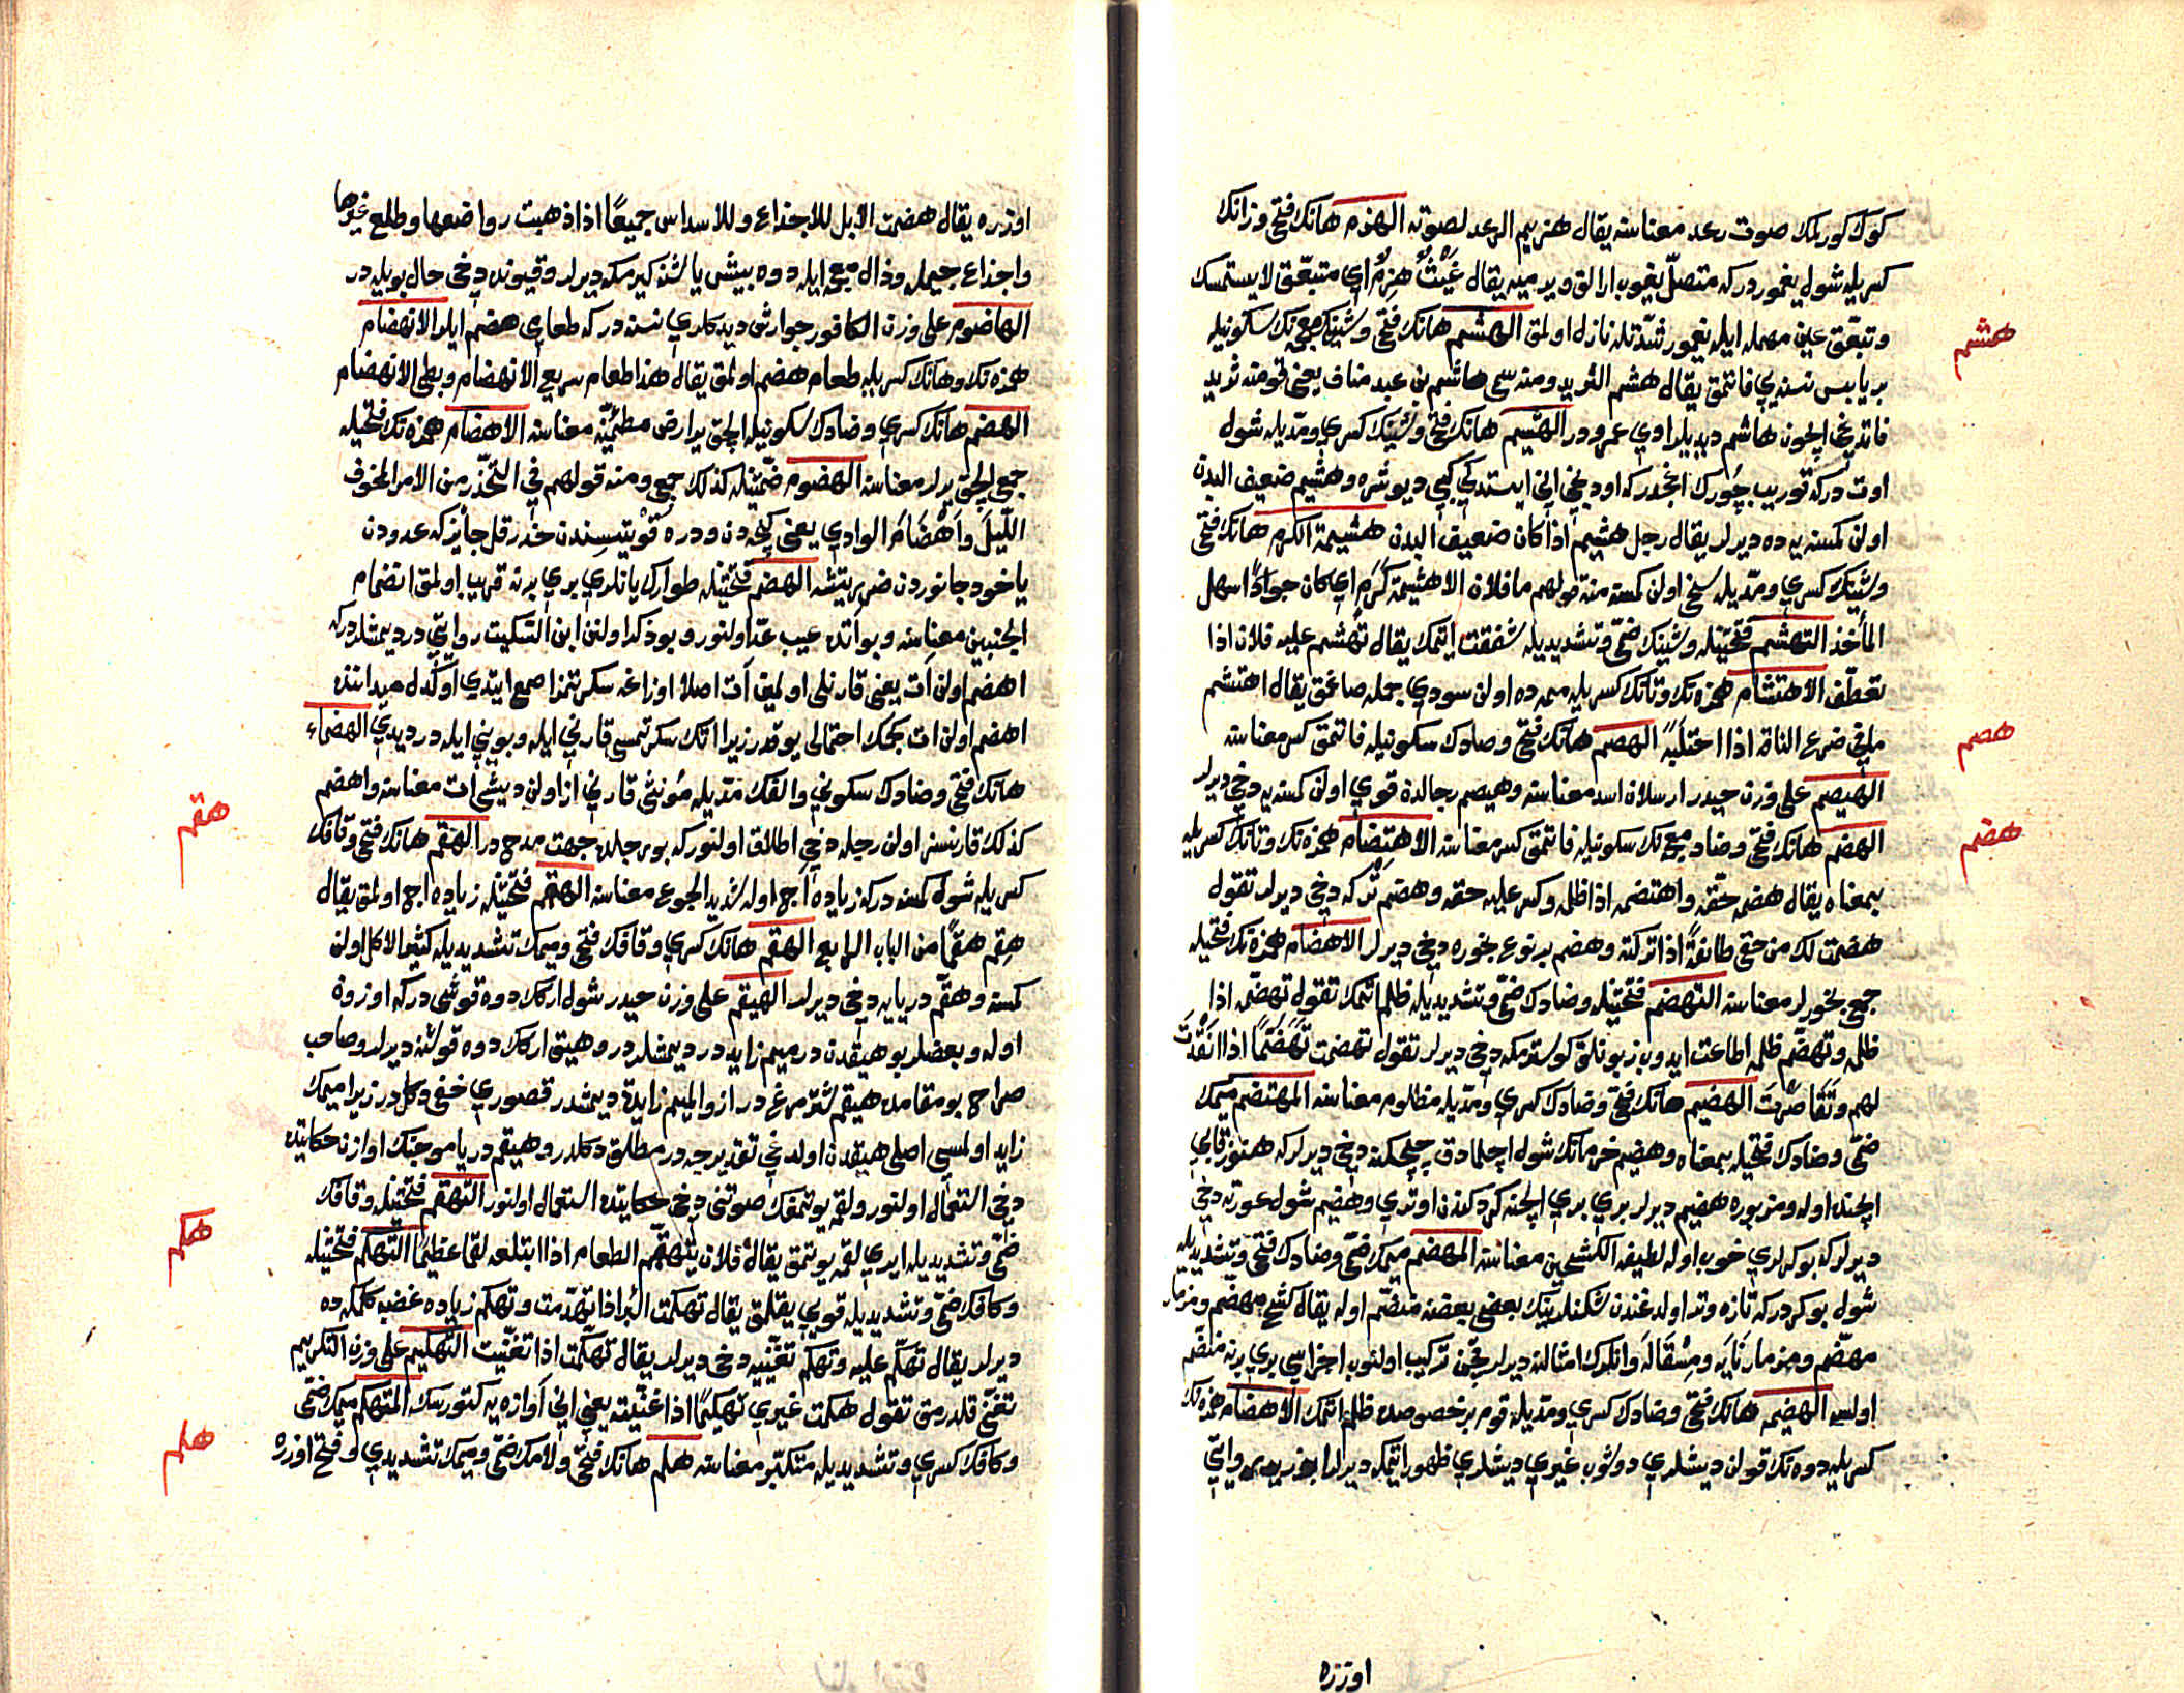 كوك كورلمك صوت رعد معناسنه يقال هزيم الرعد لصوته الهزم هانك فتحى وزانك
كسريله شول يغمور دركه متصل يغوب ارالق ويرميه يقال غيث هزم اي متبعق لا يستمسك
وتبعق عين مهمله ايله يغمور شدتله نازل اولمق الهشم هانك فتحى وشين معجمه نك سكونيله
هشم
بر يابس نسنه يى فاتمق يقال هشم الثريد ومنه سمي هاشم بن عبد مناف يعنى قومنه ثريد
فاتديغى ايچون هاشم ديديلر ادي عمرو در الهشيم هانك فتحى وشينك كسري ومديله شول
اوت دركه قوريب چورك اغجدركه اودنجى انى ايستدكي كبي ديوشره وهشيم ضعيف البدن
اولن كمسنه يه ده ديرلر يقال رجل هشيم اذا كان ضعيف البدن هشيمة الكرم هانك فتحى
وشينك كسري ومديله سخى اولن كمسنه منه قولهم ما فلان الا هشيمة كرم اي كان جوادا سهل
المأخذ التهشم فتحتيله وشينك ضمى وتشديديله شفقت ايتمك يقال تهشم عليه فلان اذا
تعطف الاهتشام همزه نك وتانك كسريله ممه ده اولن سودي جمله صاغمق يقال اهتشم
مافى ضرع الناقة اذا احتلبه الهصم هانك فتحى وصادك سكونيله فاتمق كسر معناسنه
هصم
الهيصم على وزن حيدر ارسلان اسد معناسنه وهيصم رجالدن قوي اولن كمسنه يه دخى ديرلر
الهضم هانك فتحى وضاد معجمه نك سكونيله فاتمق كسر معناسنه الاهتضام همزه نك وتانك كسريله
هضم
بمعناه يقال هضمه حقه واهتضمه اذا ظلمه وكسر عليه حقه وهضم ترك دخى ديرلر تقول
هضمت لك من حقى طائفة اذا تركته وهضم بر نوع بخوره دخى ديرلر الاهضام همزه نك فتحيله
جمع بخورلر معناسنه التهضم فتحتيله وضادك ضمى وتشديديله ظلم ايتمك تقول تهضمه اذا
ظلمه وتهضم ظلمه اطاعت ايدوب زبونلق كوسترمكه دخى ديرلر تقول تهضمت تهضما اذا انقدت
لهم وتقاصرت الهضيم هانك فتحى وضادك كسري ومديله مظلوم معناسنه المهتضم ميمك
ضمى وضادك فتحيله بمعناه وهضيم خرمانك شول اچلمادق چچكنه دخى ديرلركه هنوز قابي
ايچنده اوله ومزبوره هضيم ديرلر بري بري ايچنه كردكندن اوتري وهضيم شول عورته دخى
ديرلركه بوكرلري خوب اوله لطيفة الكشحين معناسنه المهضم ميمك ضمى وضادك فتحى وتشديديله
شول بوكر دركه تازه وتر اولدغندن شكنلرينك بعضى بعضنه منضم اوله يقال كشح مهضم ومزمار
مهضم ومزمار نايه ومسقاله وانلرك امثالنه ديرلر نچون تركيب اولنوب اجزاسي بري برنه منضم
اولسه الهضيمه هانك فتحى وضادك كسري ومديله قوم بر خصوصده ظلم ايتمك الاهضام همزه نك
كسريله دوه نك قولن ديشلري دوشوب غيري ديشلري ظهور ايتمكه ديرلر ابو زيد روايتي
اوزره
اوزره يقال هضمت الابل للاجذاع وللاسداس جميعا اذا ذهبت رواضعها وطلع غيرها
واجذاع جيمله وذال معجمه ايله دوه بيش ياشنه كيرمكه ديرلر وقيونده دخى حال بويله در
الهاضوم على وزن الكافور جوارش ديدكلري نسنه دركه طعامى هضم ايلر الانهضام
همزه نك وهانك كسريله طعام هضم اولمق يقال هذا طعام سريع الانهضام وبطئ الانهضام
الهضم هانك كسري وضادك سكونيله الچق ير ارض مطمئنه معناسنه الاهضام همزه نك فتحيله
جمع الچق يرلر معناسنه الهضوم ضمتيله كذلك جمع ومنه قولهم في التحذير من الامر المخوف
الليل واهضام الوادي يعنى كيجه دن ودره قوتيسندن حذر قل جائزكه عدودن
ياخود جانوردن ضرر يتشه الهضم فتحتيله طوارك يانلري بري برنه قريب اولمق انضمام
الجنبين معناسنه وبو آتده عيب عد اولنور وبو ذكر اولنن ابن السكيت روايتي در ديمشلردركه
اهضم اولن آت يعنى قارنلى اولمين آت اصلا اوزاغه سكرتمز اصمعى ايتدي اوكدل ميداننده
اهضم اولن ات كچمك احتمالى يوقدر زيرا اتك سكرتمسى قارنى ايله وبويني ايله در ديدي الهضماء
هانك فتحى وضادك سكوني والفك مديله مونثى قارنى از اولن ديشى آت معناسنه واهضم
كذلك قارنسز اولن رجله دخى اطلاق اولنوركه بو رجلده جهت مدح در الهقم هانك فتحى وقافك
هقم
كسريله شول كمسه دركه زياده آج اوله شديد الجوع معناسنه الهقم فتحتيله زياده آج اولمق يقال
هقم هقما من الباب الرابع الهقم هانك كسري وقافك فتحى وميمك تشديديله كثير الاكل اولن
كمسه وهقم دريايه دخى ديرلر الهيقم على وزن حيدر شول اركك دوه قوشى دركه اوزون
اوله وبعضلر بو هيقدن در ميم زايددر ديمشلردر وهيق اركك دوه قوشنه ديرلر وصاحب
صراح بو مقامده هيقم شترمرغ دراز والميم زايدة ديمشدر قصوري خفى دكلدر زيرا ميمك
زايد اولمسى اصلى هيقدن اولدغي تقديرجه در مطلق دكلدر وهيقم دريا موجنك اوازن حكايتده
دخى استعمال اولنور ولقمه يوتمغك صوتنى دخى حكايتده استعمال اولنور التهقم فتحتيله وقافك
ضمى وتشديديله ايري لقمه يوتمق يقال فلان يتهقم الطعام اذا ابتلعه لقما عظيما التهكم فتحتيله
هكم
وكافك ضمى وتشديديله قويى يقلمق يقال تهكمت البئر اذا تهدمت وتهكم زياده غضبه كلمكه ده
ديرلر يقال تهكم عليه وتهكم تغنيه دخى ديرلر يقال تهكمت اذا تغنيت التهكيم على وزن التكريم
تغنى قلدرمق تقول هكمت غيري تهكيما اذا غنيته يعنى انى آوازه يه كتورسك المتهكم ميمك ضمى
وكافك كسري وتشديديله متكبر معناسنه هلم هانك فتحى ولامك ضمى وميمك تشديدي وفتحى اوزره
هلم